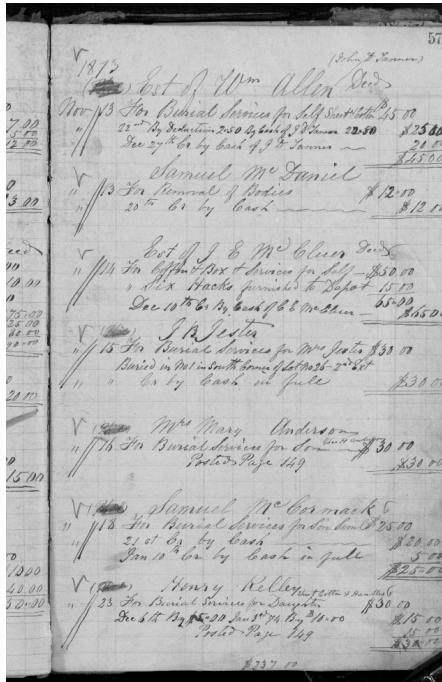 57
(John D Tanner)
1873
Est of Wm Allen Decd
Nov 13 For Burial Services for Self 45 00
22nd By Deduction 2.50 By Cash of J D Tanner 22.50 $25 00
Dec 27th Cr by Cash of J D Tanner 20 00
$45 00
Samuel McDaniel
" 13 For Removal of Bodies $12.00
20th Cr by Cash $12 00
Est of J E McCluer Decd
" 14 For Coffin & Box & Services for Self $50 00
" Six Hacks furnished to Depot 15 00
65.00
Dec 10th Cr By Cash of E E McCluer $65 00
J B Jester
" 15 For Burial Services for Mrs Jester $30 00
Buried in No 1 in South Corner of Lot No 26 - 2nd Ext
" Cr by Cash in full $30 00
Mrs Mary Anderson
" 16 For Burial Services for Son $30 00
Posted Page 149 $30 00
Samuel McCormack
" 18 For Burial Services for Son $25 00
21st Cr by Cash $20 00
Jan 10th Cr by Cash in full 5 00
$25 00
Henry Kelley
" 23 For Burial Services for Daughter $30 00
Dec 6th By $5.00 Jan 3rd 74 By $10.00 $15 00
Posted Page 149 15 00
$30 00
$237.00